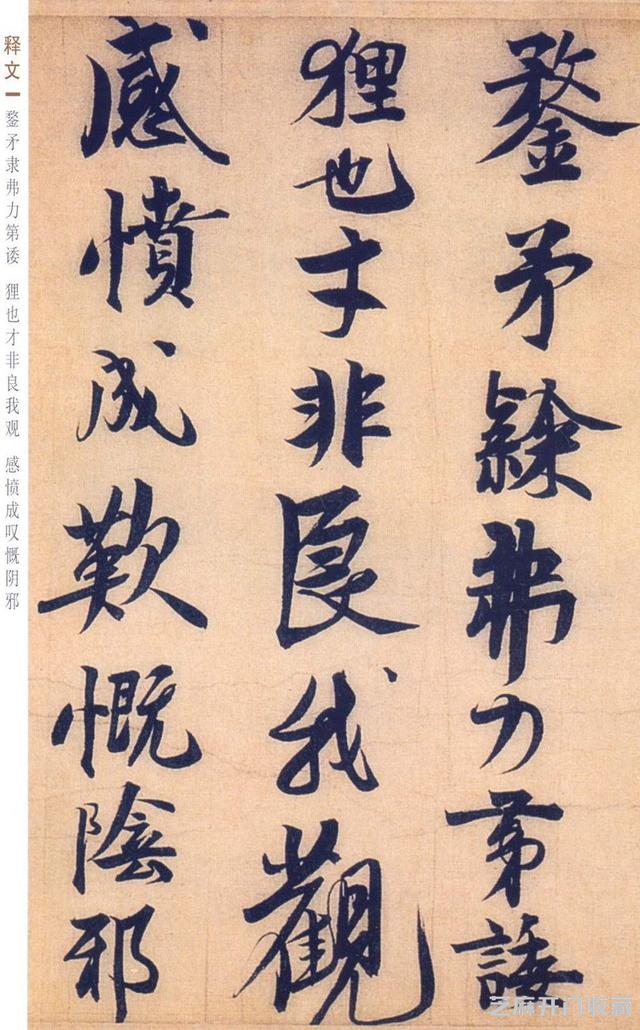 鍪矛隸弗力第諉
狸也才非良我觀
感憤成歎慨陰邪
释文
鍪矛隶弗力第诿 狸也才非良我观 感愤成叹慨阴邪
芝麻开门收藏